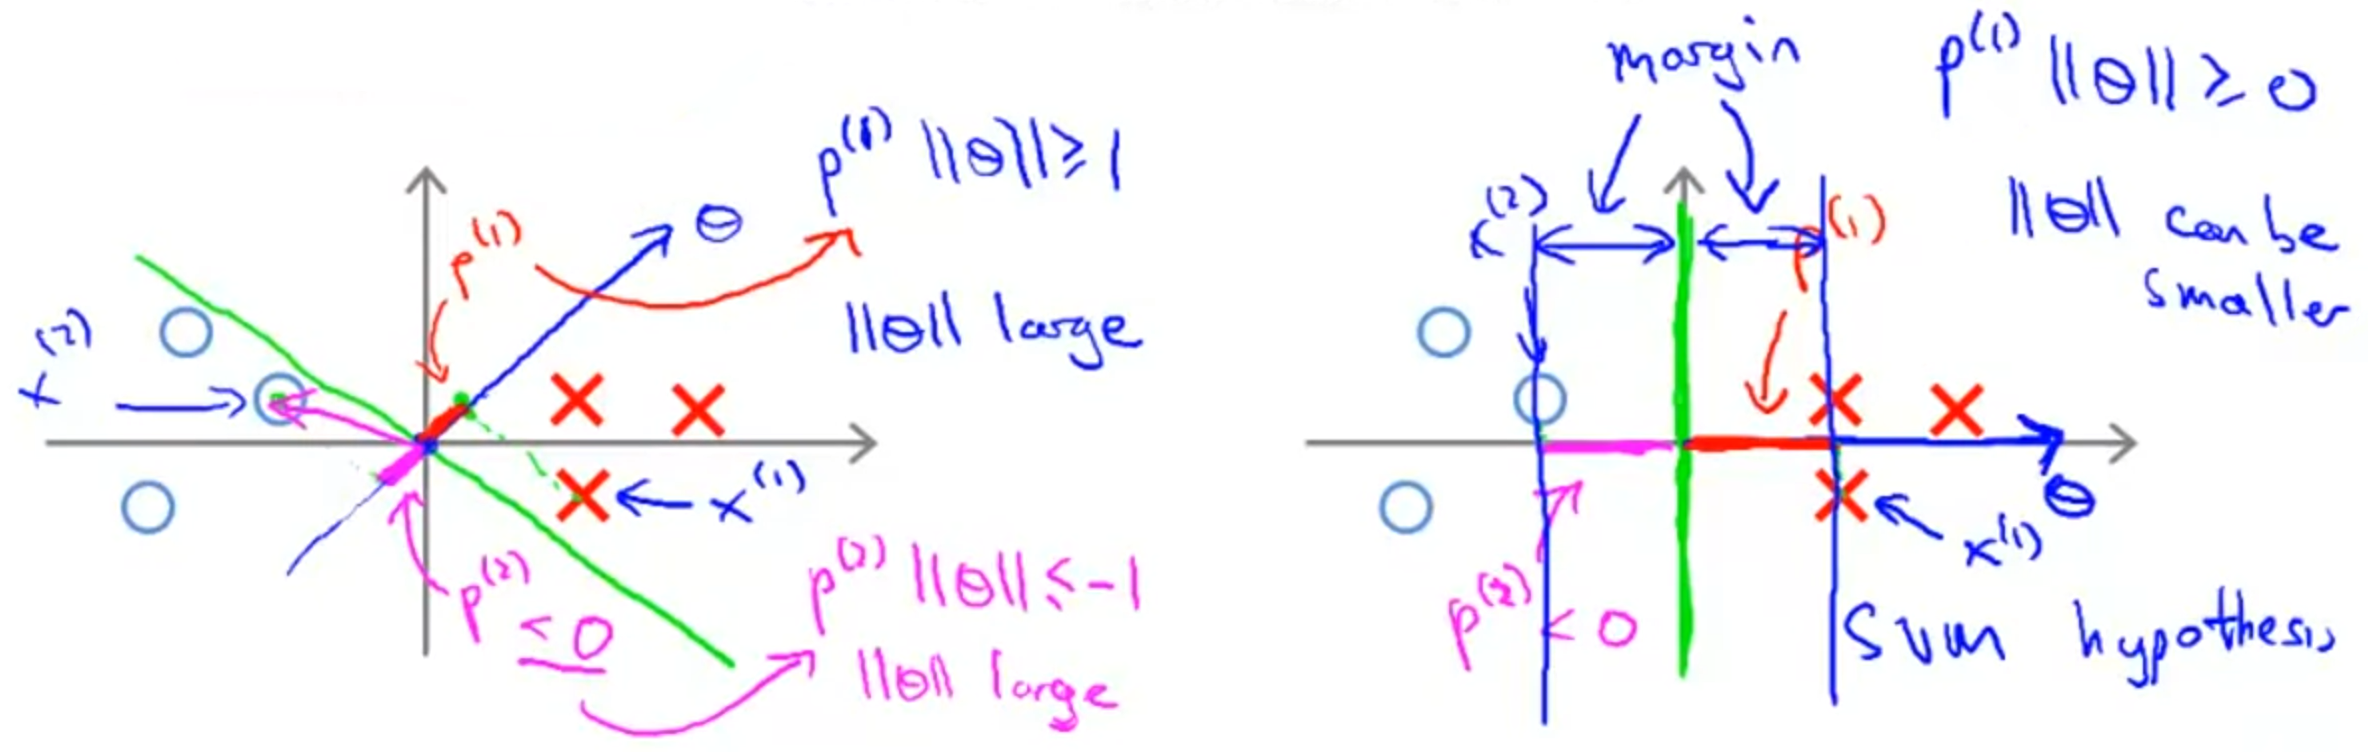 p^(1) ||θ|| ≥ 1
θ
p^(1)
||θ|| large
x^(2)
x^(1)
p^(2) < 0
p^(2) ||θ|| ≤ -1
||θ|| large
margin
p^(1) ||θ|| ≥ 0
x^(2)
p^(1)
||θ|| can be
smaller
θ
x^(1)
p^(2) < 0
SVM hypothesis